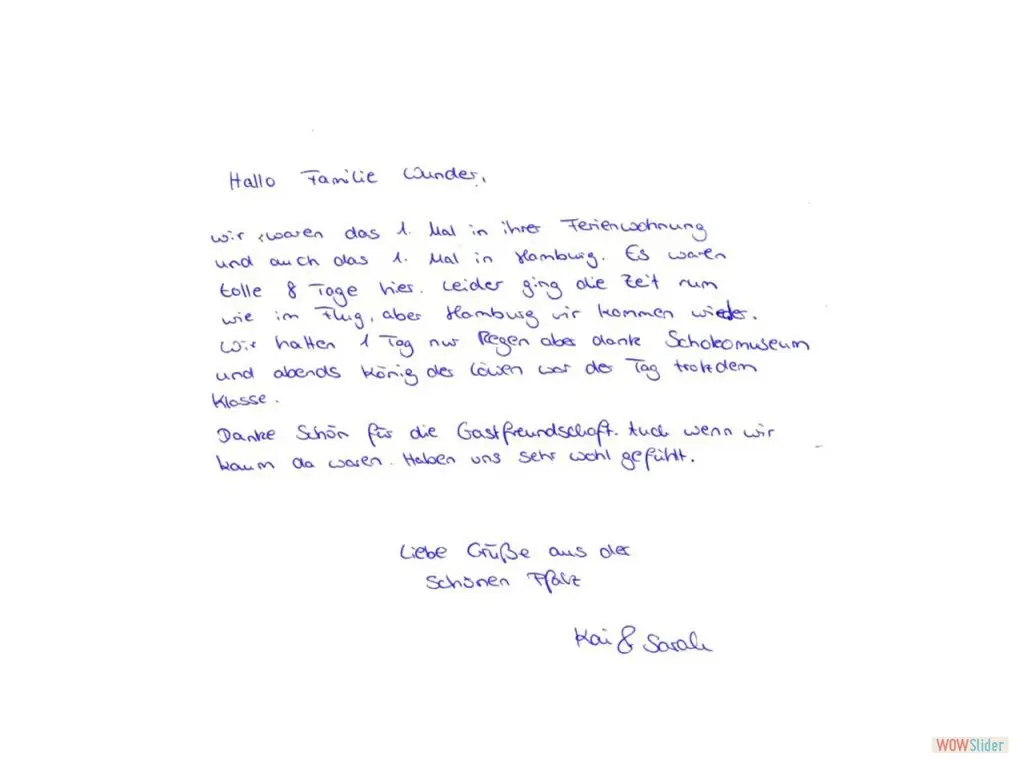 Hallo Familie Wunder,
wir waren das 1. Mal in ihrer Ferienwohnung
und auch das 1. Mal in Hamburg. Es waren
tolle 8 Tage hier. Leider ging die Zeit rum
wie im Flug, aber Hamburg wir kommen wieder.
Wir hatten 1 Tag nur Regen aber dank Schokomuseum
und abends König der Löwen war der Tag trotzdem
Klasse.
Danke Schön für die Gastfreundschaft. Auch wenn wir
kaum da waren. Haben uns sehr wohl gefühlt.
Liebe Grüße aus der
Schönen Pfalz
Kai & Sarah
WOWSlider